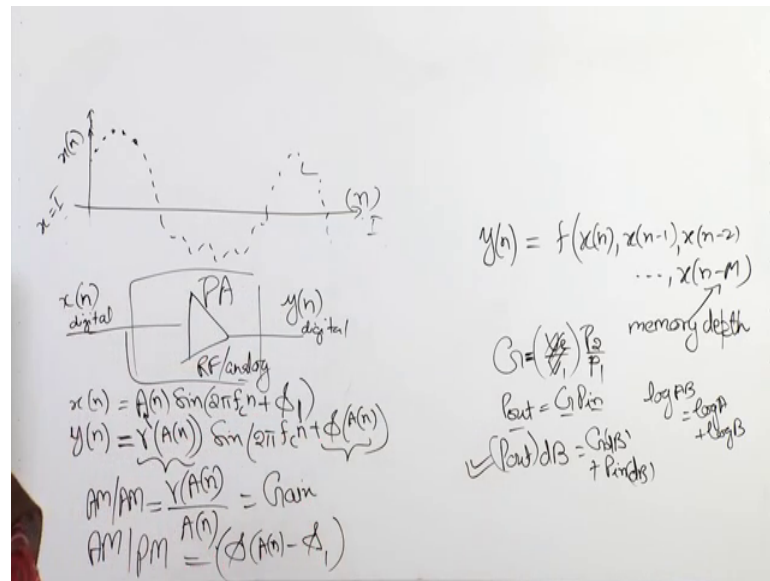 x(n)
(n)
x=I
I
PA
x(n)
digital
y(n)
digital
RF/analog
x(n) = A(n) Sin(2πfcn + φ1)
y(n) = r(A(n)) Sin(2πfcn + φ(A(n))
AM/AM = r(A(n) / A(n) = Gain
AM/PM = (φ(A(n) - φ1)
y(n) = f(x(n), x(n-1), x(n-2)
..., x(n-M)
memory depth
G = P2/P1
Pout = G Pin
log AB
= log A
+ log B
(Pout)dB = G(dB)
+ Pin(dB)